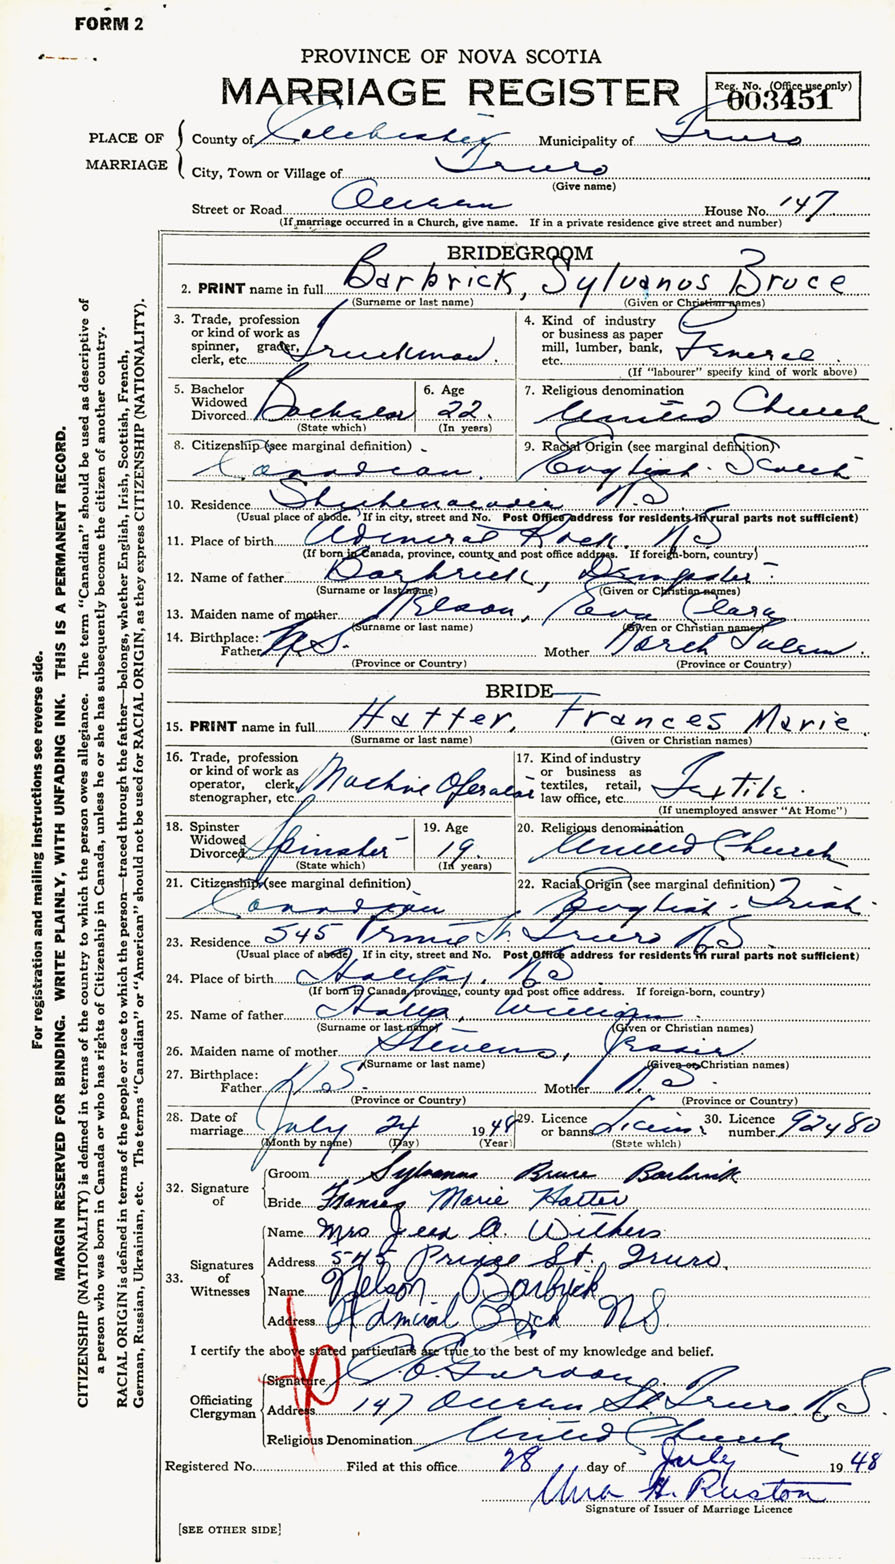 FORM 2
PROVINCE OF NOVA SCOTIA
MARRIAGE REGISTER
Reg. No. (Office use only)
003451
PLACE OF MARRIAGE
County of Colchester Municipality of Truro
City, Town or Village of Truro
(Give name)
Street or Road Queen House No. 147
(If marriage occurred in a Church, give name. If in a private residence give street and number)
BRIDEGROOM
2. PRINT name in full Barbrick, Sylvanus Bruce
(Surname or last name) (Given or Christian names)
3. Trade, profession or kind of work as spinner, grader, clerk, etc. Truckman
4. Kind of industry or business as paper mill, lumber, bank, etc. General
(If "labourer" specify kind of work above)
5. Bachelor Widowed Divorced Bachelor
(State which)
6. Age 22
(In years)
7. Religious denomination United Church
8. Citizenship (see marginal definition) Canadian
9. Racial Origin (see marginal definition) English - Scotch
10. Residence Shubenacadie N.S
(Usual place of abode. If in city, street and No. Post Office address for residents in rural parts not sufficient)
11. Place of birth Admiral Rock, N.S
(If born in Canada, province, county and post office address. If foreign-born, country)
12. Name of father Barbrick, Dempster
(Surname or last name) (Given or Christian names)
13. Maiden name of mother Nelson, Eva Clara
(Surname or last name) (Given or Christian names)
14. Birthplace: Father N.S. Mother North Salem
(Province or Country) (Province or Country)
BRIDE
15. PRINT name in full Hatter, Frances Marie
(Surname or last name) (Given or Christian names)
16. Trade, profession or kind of work as operator, clerk, stenographer, etc. Machine Operator
17. Kind of industry or business as textiles, retail, law office, etc. Textile
(If unemployed answer "At Home")
18. Spinster Widowed Divorced Spinster
(State which)
19. Age 19
(In years)
20. Religious denomination United Church
21. Citizenship (see marginal definition) Canadian
22. Racial Origin (see marginal definition) English - Irish
23. Residence 545 Prince St. Truro N.S.
(Usual place of abode). If in city, street and No. Post Office address for residents in rural parts not sufficient)
24. Place of birth Halifax, N.S
(If born in Canada, province, county and post office address. If foreign-born, country)
25. Name of father William
(Surname or last name) (Given or Christian names)
26. Maiden name of mother Stevens,
(Surname or last name) (Given or Christian names)
27. Birthplace: Father N.S. Mother N.S.
(Province or Country) (Province or Country)
28. Date of marriage July 24 1948
(Month by name) (Day) (Year)
29. Licence or banns
(State which)
30. Licence number 92480
32. Signature of
Groom Sylvanus Bruce Barbrick
Bride Frances Marie Hatter
33. Signatures of Witnesses
Name Mrs Jean A. Withers
Address 545 Prince St. Truro.
Name Nelson Barbrick
Address Admiral Rock N S
I certify the above stated particulars are true to the best of my knowledge and belief.
Officiating Clergyman
Signature
Address 147 Queen St. Truro N.S.
Religious Denomination United Church
Registered No. Filed at this office 28 day of July 1948
Una H. Ruston
Signature of Issuer of Marriage Licence
[SEE OTHER SIDE]
For registration and mailing instructions see reverse side.
MARGIN RESERVED FOR BINDING. WRITE PLAINLY, WITH UNFADING INK. THIS IS A PERMANENT RECORD.
CITIZENSHIP (NATIONALITY) is defined in terms of the country to which the person owes allegiance. The term "Canadian" should be used as descriptive of
a person who was born in Canada or who has rights of Citizenship in Canada, unless he or she has subsequently become the citizen of another country.
RACIAL ORIGIN is defined in terms of the people or race to which the person—traced through the father—belongs, whether English, Irish, Scottish, French,
German, Russian, Ukrainian, etc. The terms "Canadian" or "American" should not be used for RACIAL ORIGIN, as they express CITIZENSHIP (NATIONALITY).